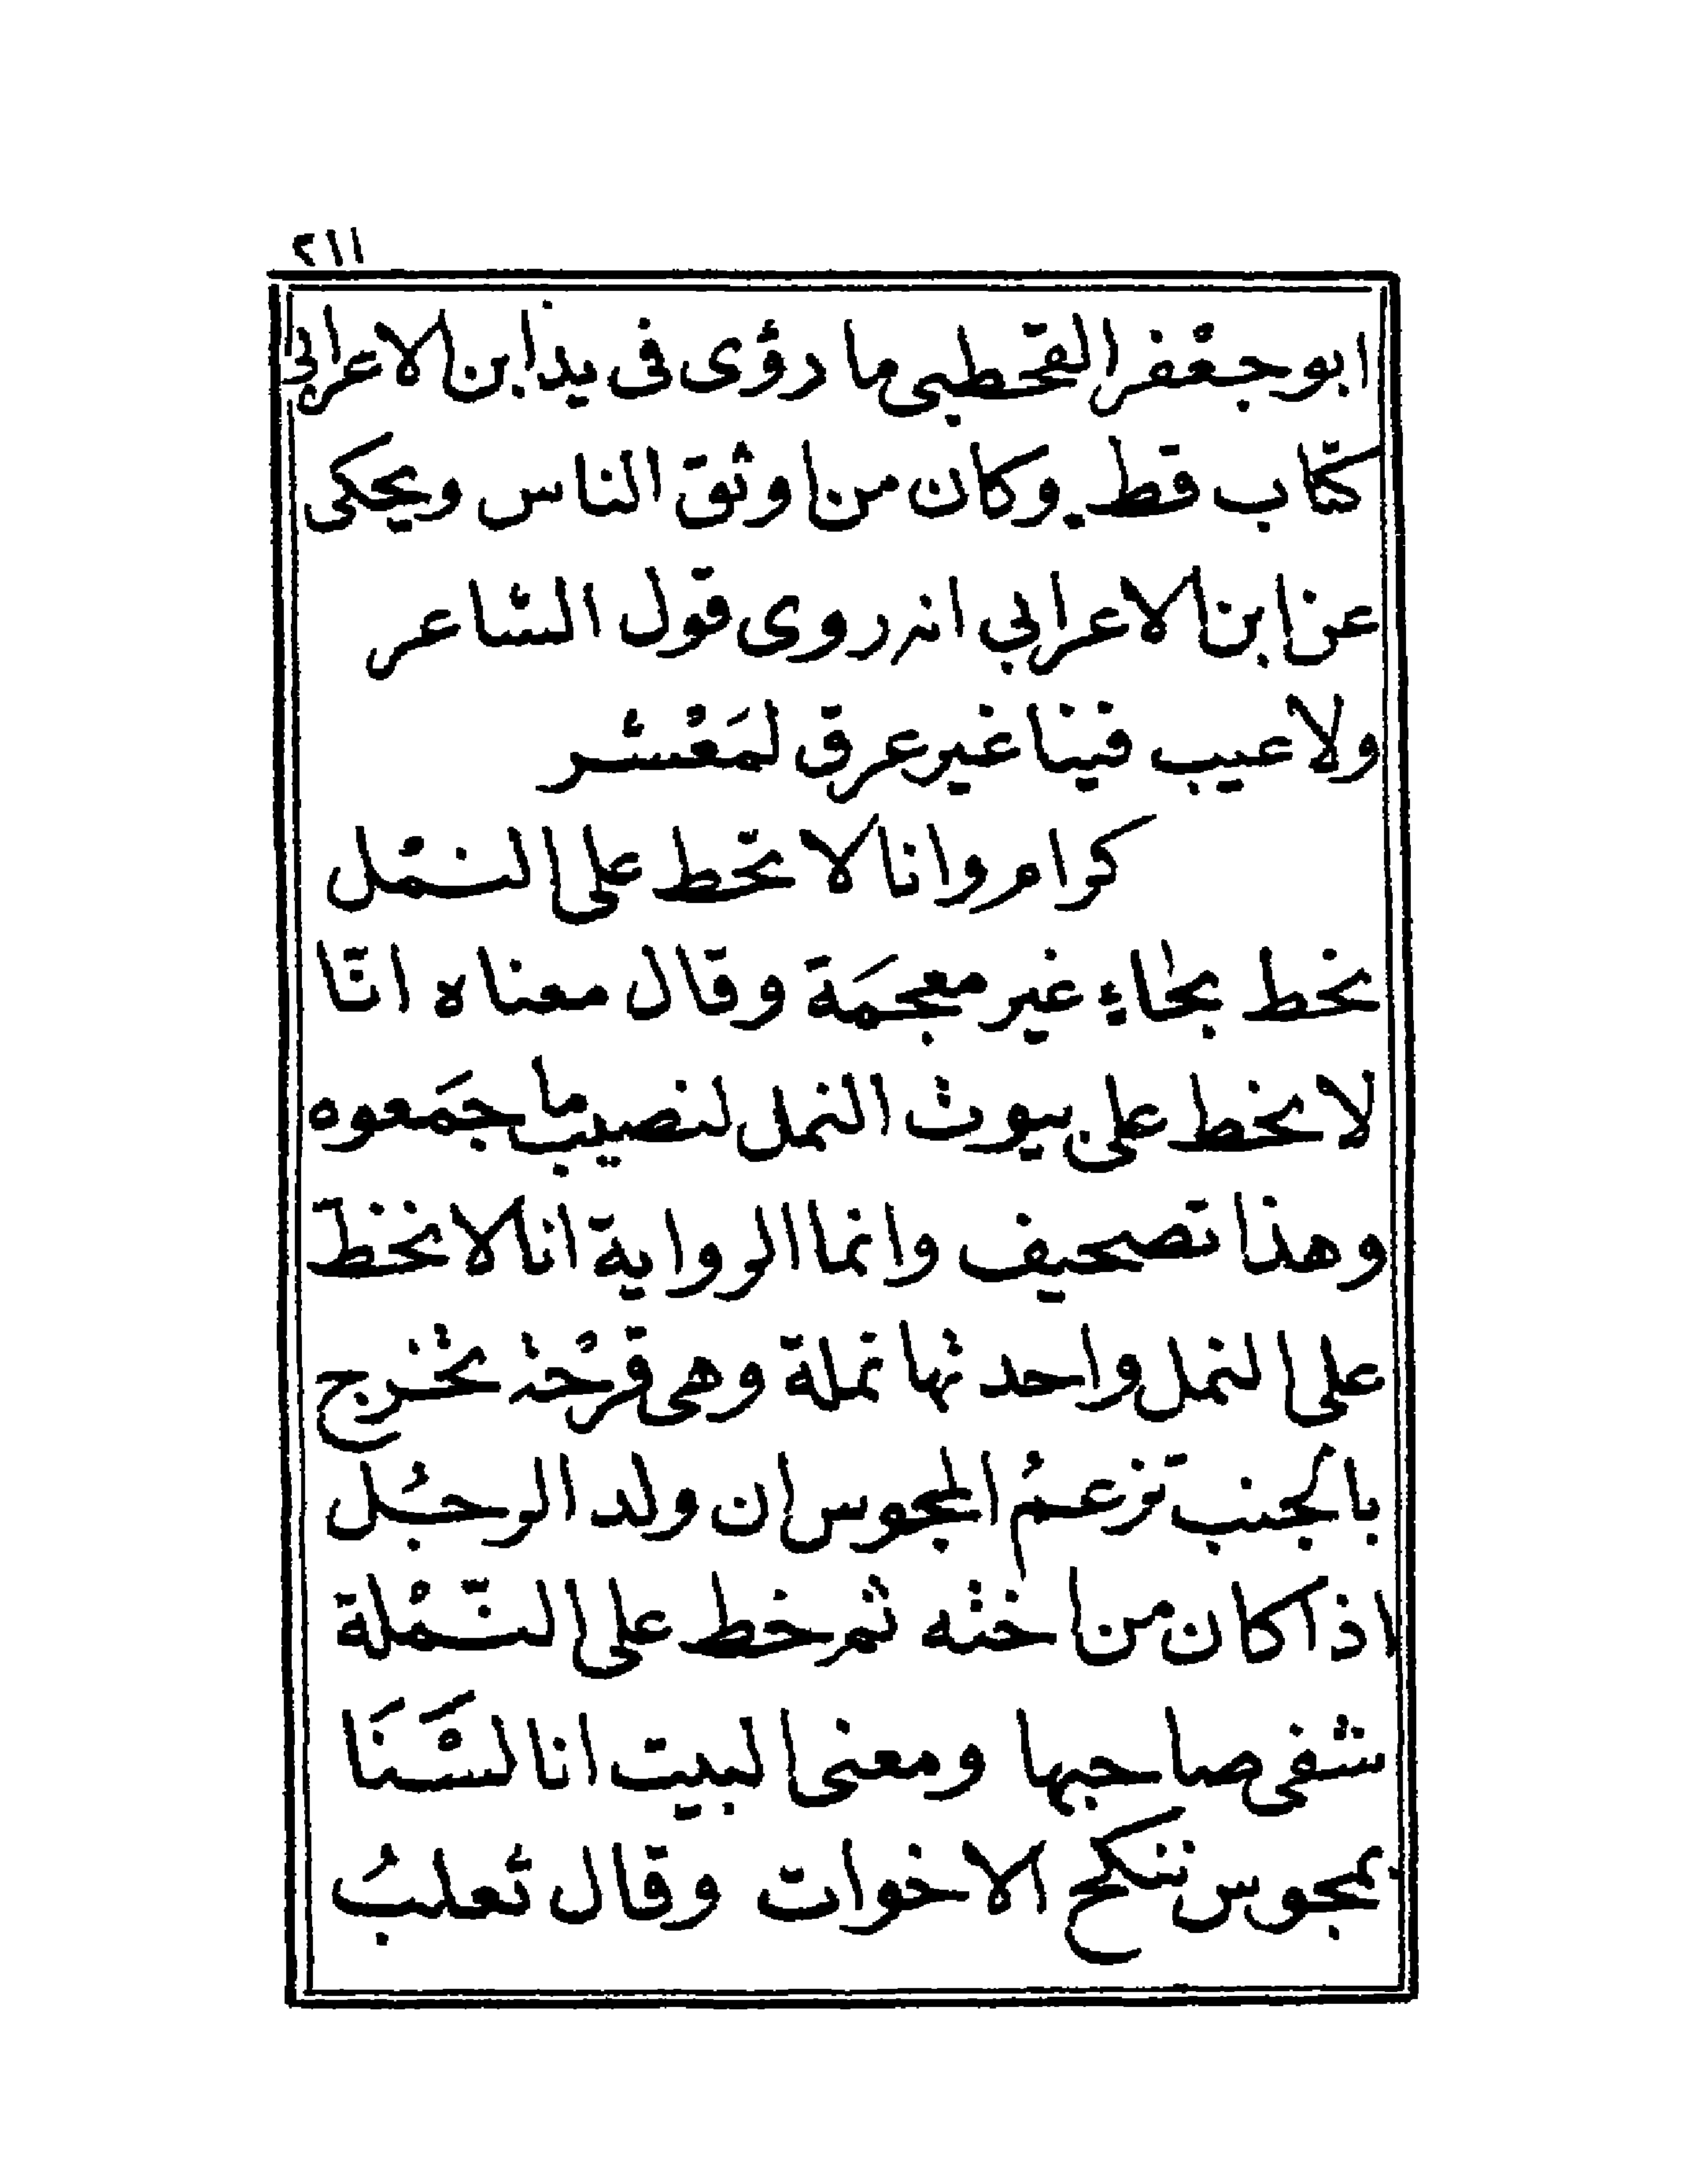 ٢١١
ابو جعْفر القحطبي ما رؤى فى يد ابن الاعرابى
كتاب قط وكان من اوثق الناس ويحكى
عن ابن الاعرابي انه روى قول الشاعر
ولا عيب فينا غير عرق لمَعْشر
كرام وانا لا نخط على النمْل
نخط بحاءٍ غير معجمَة وقال معناه انّا
لا نخط على بيوت النمل لنصيب ما جمَعوه
وهذا تصحيف وانما الرواية انا لا نخطّ
على النمل واحدتها نملة وهى قرْحة تخْرج
بالجنب تزعمُ المجوس ان ولد الرجُل
اذا كان من اخته ثم خط على النّمْلة
شفى صاحبها ومعنى البيت انا لسْنَا
بمجوس ننكح الاخوات وقال ثعلبُ